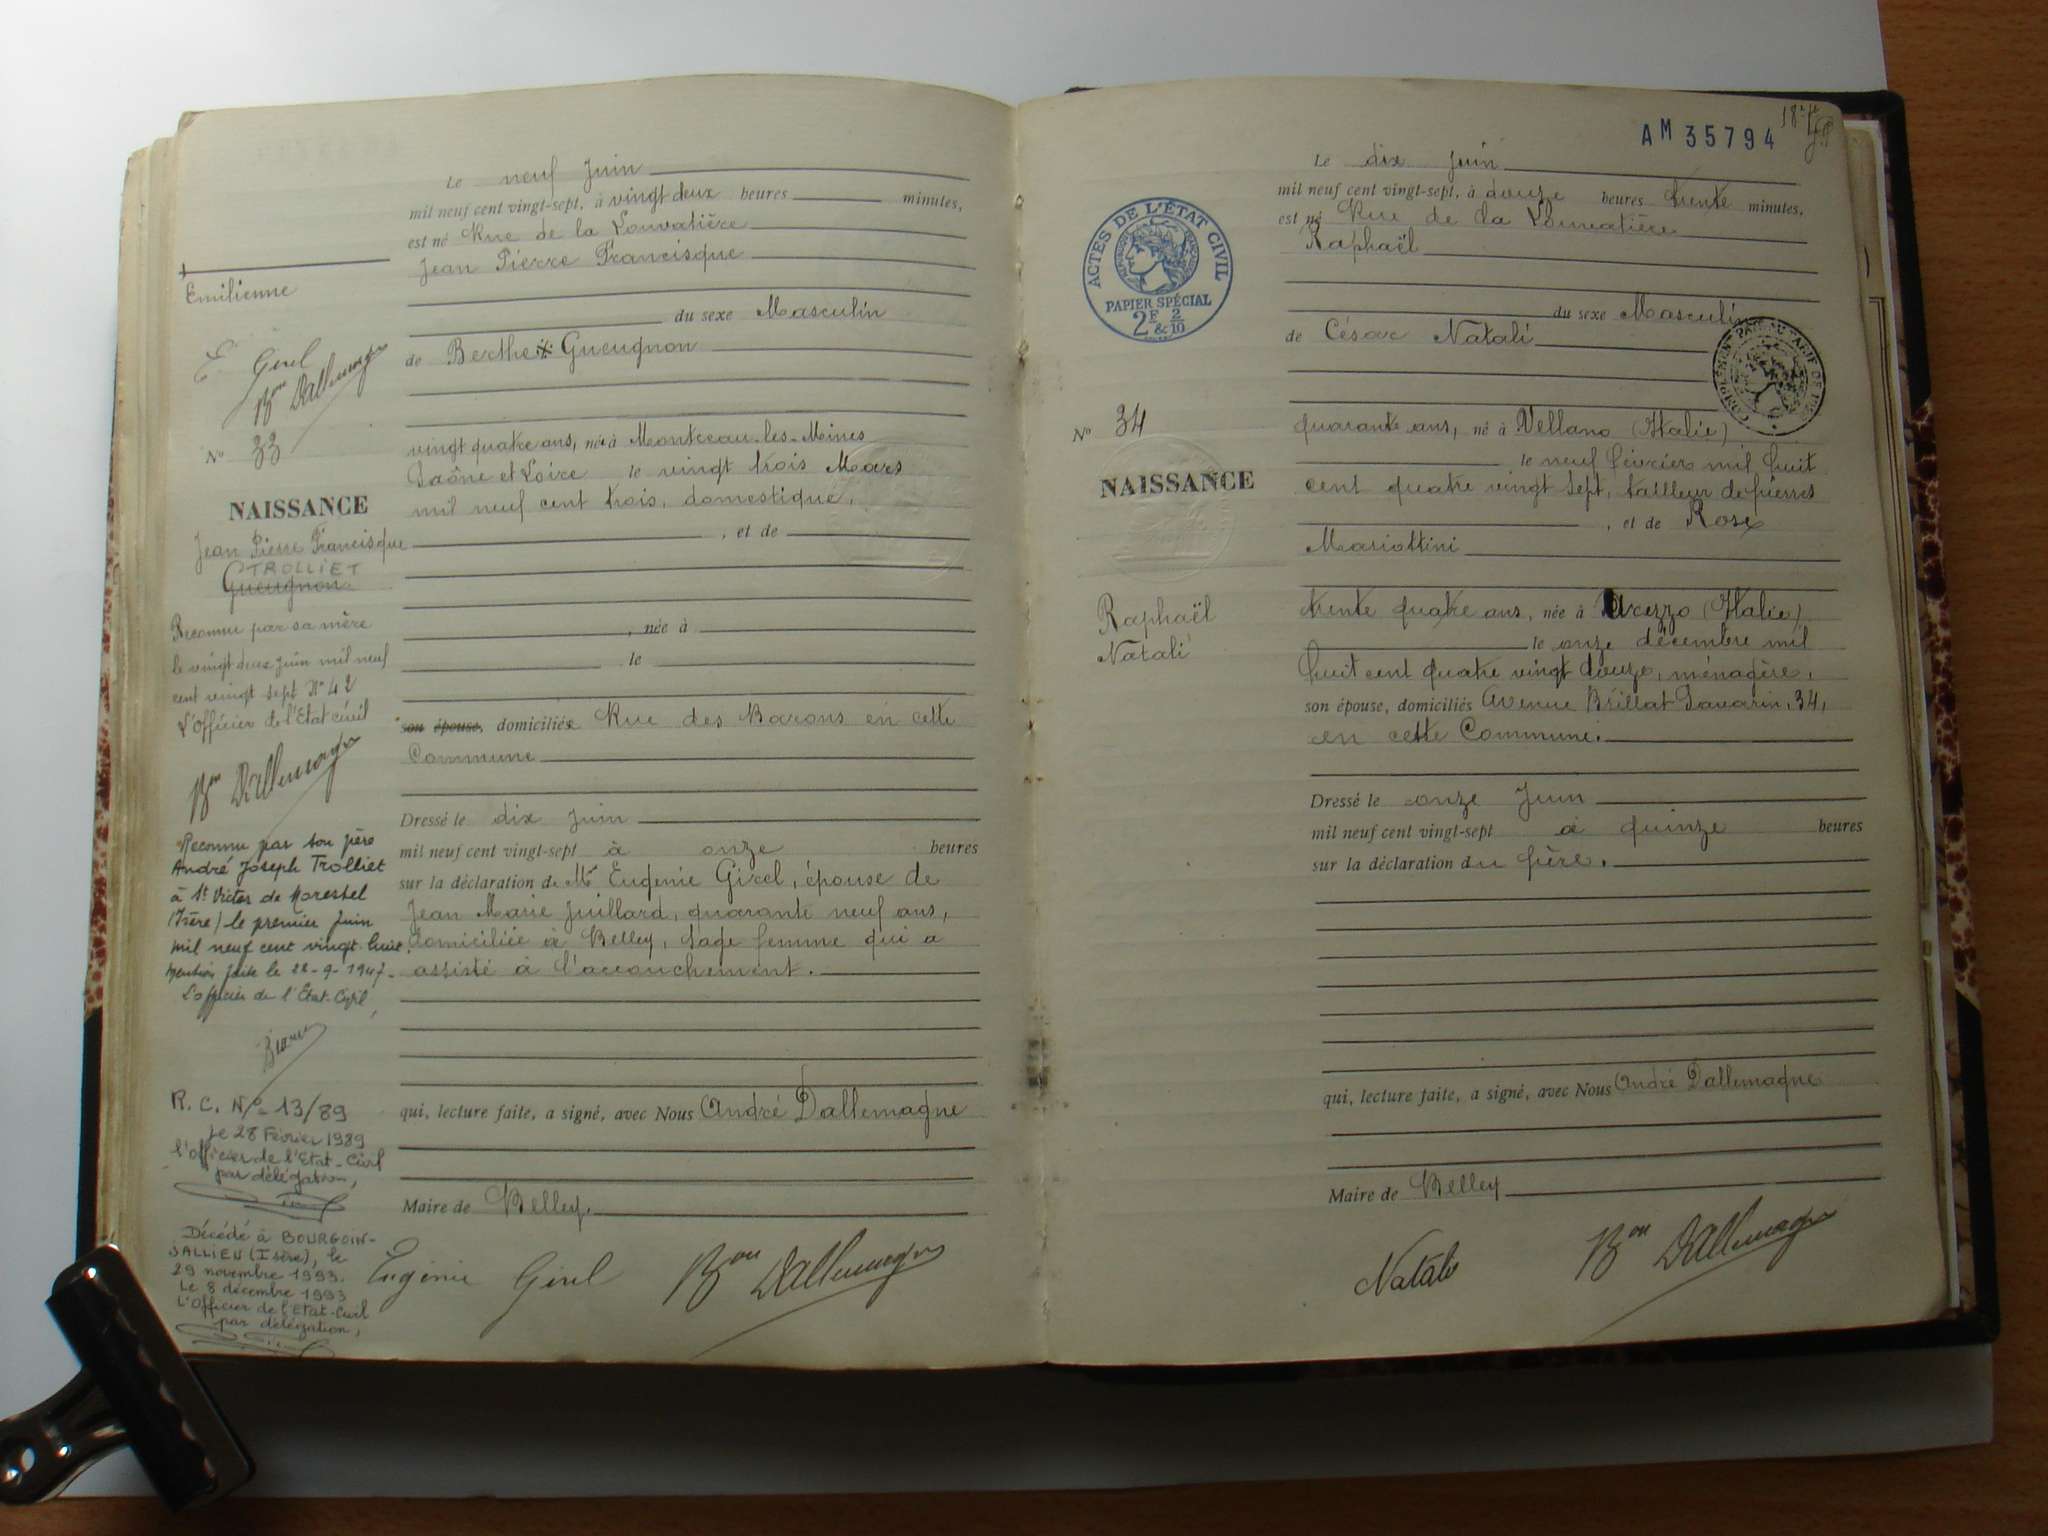 Emilienne
E Girel
Bon Dallemagne
No 33
NAISSANCE
Jean Pierre Francisque
TROLLIET
Gueugnon
Reconnu par sa mère
le vingt deux juin mil neuf
cent vingt sept No 42
L'Officier de l'Etat civil
Bon Dallemagne
Reconnu par son père
André Joseph Trolliet
à St Victor de Morestel
(Isère) le premier Juin
mil neuf cent vingt huit.
Mention faite le 22-9-1947
L'officier de l'Etat-Civil,
R.C. No 13/89
Le 28 Février 1989
l'Officier de l'Etat-Civil
par délégation,
Décédé à BOURGOIN-
JALLIEU (Isère), le
29 novembre 1993.
Le 8 décembre 1993
L'Officier de l'Etat-Civil
par délégation,
Le neuf Juin
mil neuf cent vingt-sept, à vingt deux heures minutes,
est né Rue de la Louvatière
Jean Pierre Francisque
du sexe Masculin
de Berthe Gueugnon
vingt quatre ans, née à Montceau-les-Mines
Saône et Loire le vingt trois Mars
mil neuf cent trois, domestique,
, et de
, née à
le
son épouse, domiciliée Rue des Barons en cette
Commune
Dressé le dix juin
mil neuf cent vingt-sept à onze heures
sur la déclaration de Me Eugénie Girel, épouse de
Jean Marie Juillard, quarante neuf ans,
domiciliée à Belley, sage femme qui a
assisté à l'accouchement.
qui, lecture faite, a signé, avec Nous André Dallemagne
Maire de Belley.
Eugénie Girel Bon Dallemagne
AM 35794
ACTES DE L'ÉTAT CIVIL
PAPIER SPÉCIAL
2F & 2/10
No 34
NAISSANCE
Raphaël
Natali
Le dix juin
mil neuf cent vingt-sept, à douze heures trente minutes,
est né Rue de la Louvatière
Raphaël
du sexe Masculin
de César Natali
quarante ans, né à Vellano (Italie)
le neuf février mil huit
cent quatre vingt sept, tailleur de pierres
, et de Rose
Mariottini
trente quatre ans, née à Arezzo (Italie)
le onze décembre mil
huit cent quatre vingt douze, ménagère,
son épouse, domiciliés Avenue Brillat Savarin, 34,
en cette Commune.
Dressé le onze Juin
mil neuf cent vingt-sept à quinze heures
sur la déclaration du père.
qui, lecture faite, a signé, avec Nous André Dallemagne
Maire de Belley
Natali Bon Dallemagne